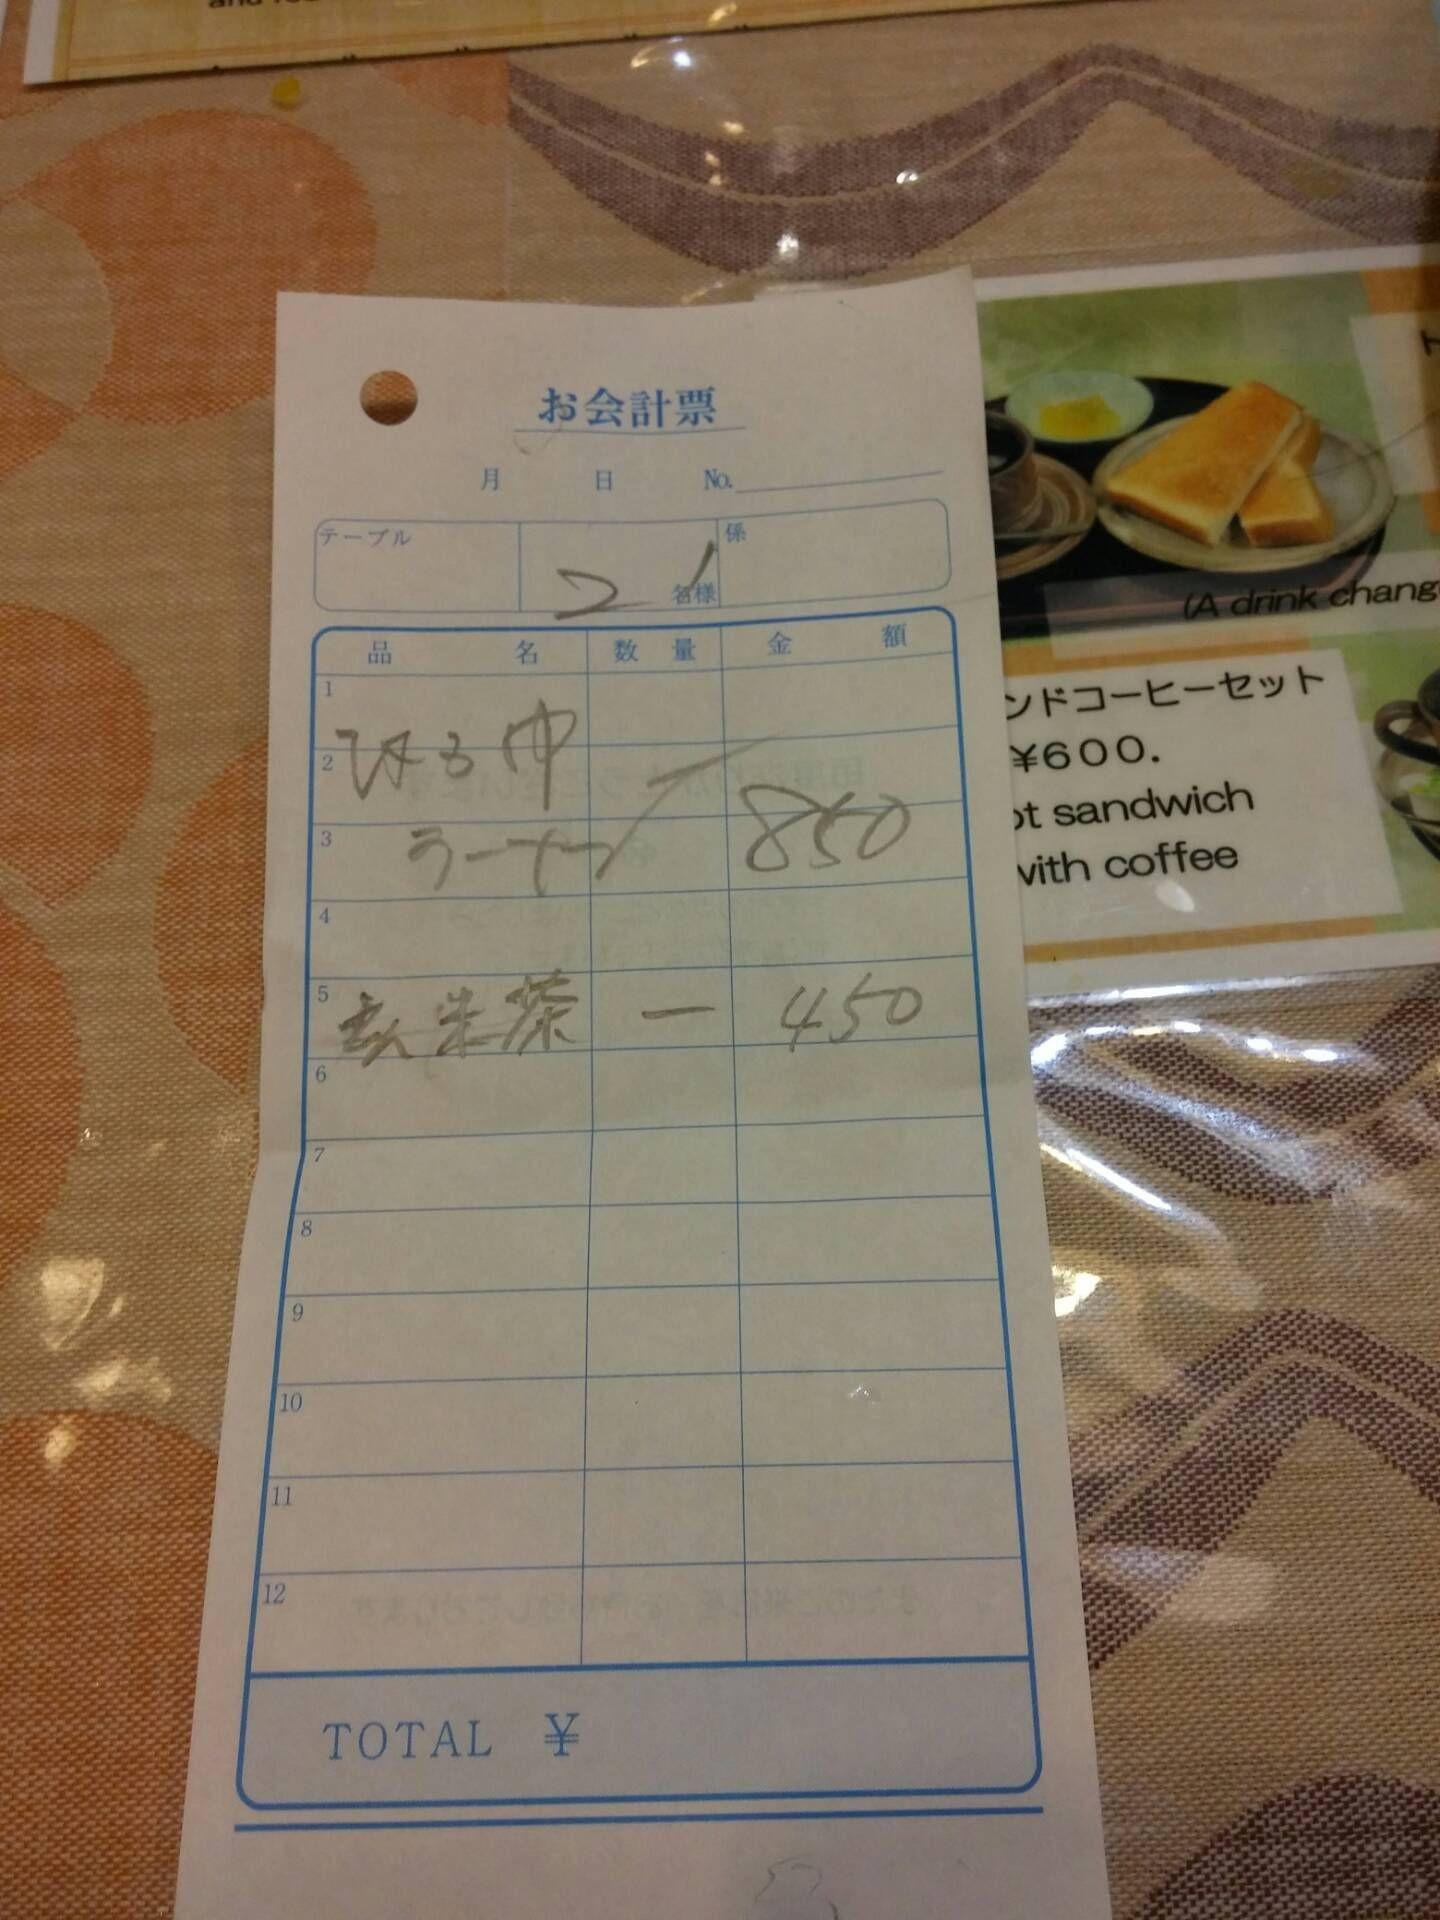 お会計票
月 日 No.
テーブル 2 名様 係
品名 数量 金額
1
2
3 ラーメン 850
4
5 玄米茶 一 450
6
7
8
9
10
11
12
TOTAL ¥
(A drink chang
ンドコーヒーセット
¥600.
ot sandwich
with coffee